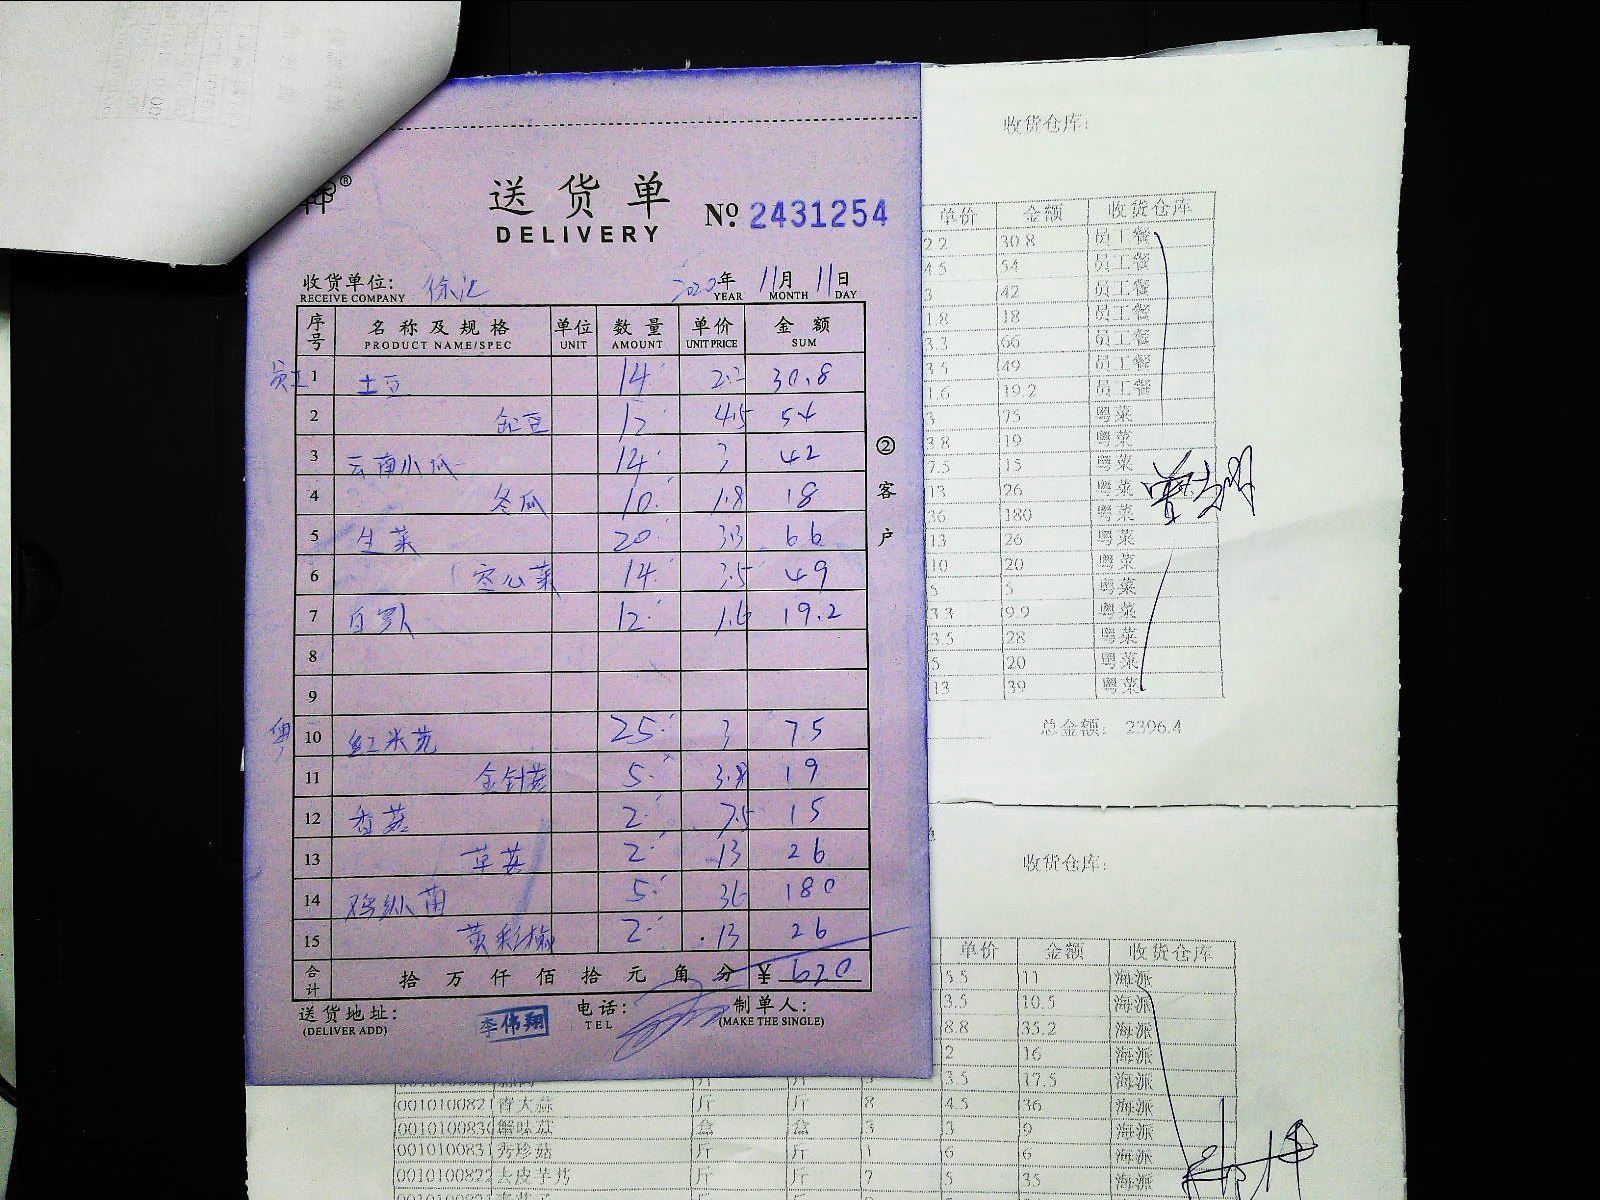 送货单
DELIVERY
No. 2431254
收货单位: 徐汇 2020年 11月 11日
RECEIVE COMPANY YEAR MONTH DAY
序号 名称及规格 单位 数量 单价 金额
PRODUCT NAME/SPEC UNIT AMOUNT UNIT PRICE SUM
员工 1 土豆 14 2.2 30.8
2 缸豆 12 4.5 54
3 云南小瓜 14 3 42
4 冬瓜 10 1.8 18
5 生菜 20 3.3 66
6 空心菜 14 3.5 49
7 白罗卜 12 1.6 19.2
8
9
粤 10 红米苋 25 3 75
11 金针菇 5 3.8 19
12 香菇 2 7.5 15
13 草菇 2 13 26
14 鸡纵菌 5 36 180
15 黄彩椒 2 13 26
合计 拾 万 仟 佰 拾 元 角 分 ¥ 620
送货地址: 电话: 制单人:
(DELIVER ADD) 李伟翔 TEL (MAKE THE SINGLE)
②客户
收货仓库:
单价 金额 收货仓库
2.2 30.8 员工餐
4.5 54 员工餐
3 42 员工餐
1.8 18 员工餐
3.3 66 员工餐
3.5 49 员工餐
1.6 19.2 员工餐
3 75 粤菜
3.8 19 粤菜
7.5 15 粤菜
13 26 粤菜
36 180 粤菜
13 26 粤菜
10 20 粤菜
5 5 粤菜
3.3 9.9 粤菜
3.5 28 粤菜
5 20 粤菜
13 39 粤菜
总金额: 2396.4
收货仓库:
单价 金额 收货仓库
5.5 11 海派
3.5 10.5 海派
8.8 35.2 海派
2 16 海派
3.5 17.5 海派
0010100821 青大蒜 斤 斤 8 4.5 36 海派
001010083 蟹味菇 盒 盒 3 3 9 海派
001010083 秀珍菇 斤 斤 1 6 6 海派
0010100822 去皮芋艿 斤 斤 7 5 35 海派